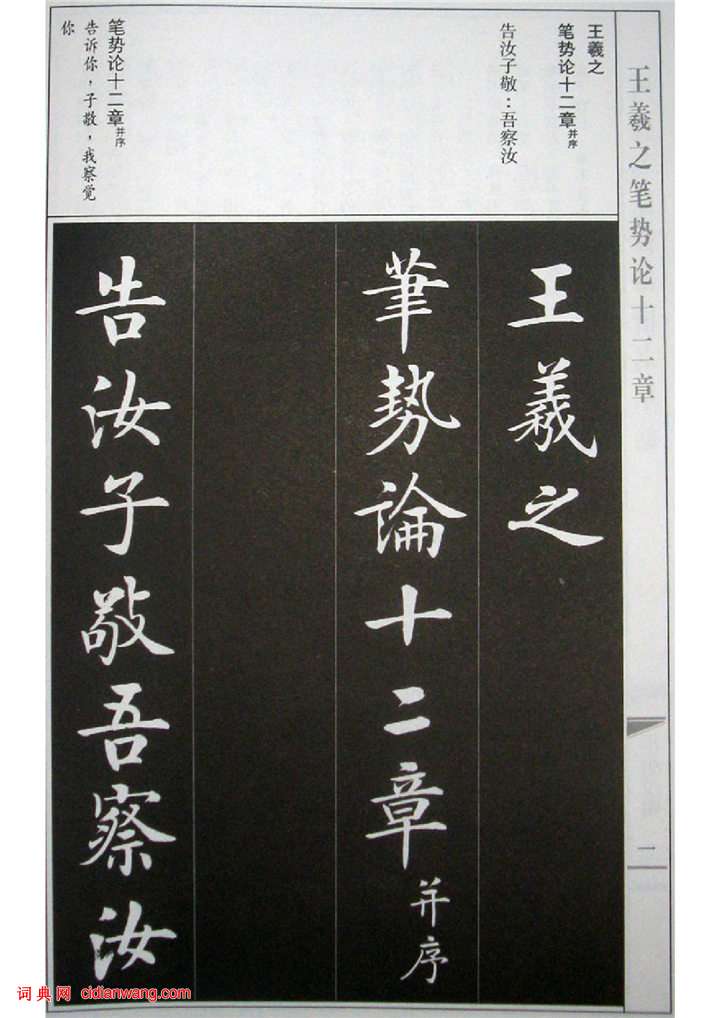 王羲之笔势论十二章
一
王羲之
笔势论十二章并序
告汝子敬：吾察汝
笔势论十二章并序
告诉你，子敬，我察觉
你
王羲之
筆勢論十二章并序
告汝子敬吾察汝
词典网 cidianwang.com